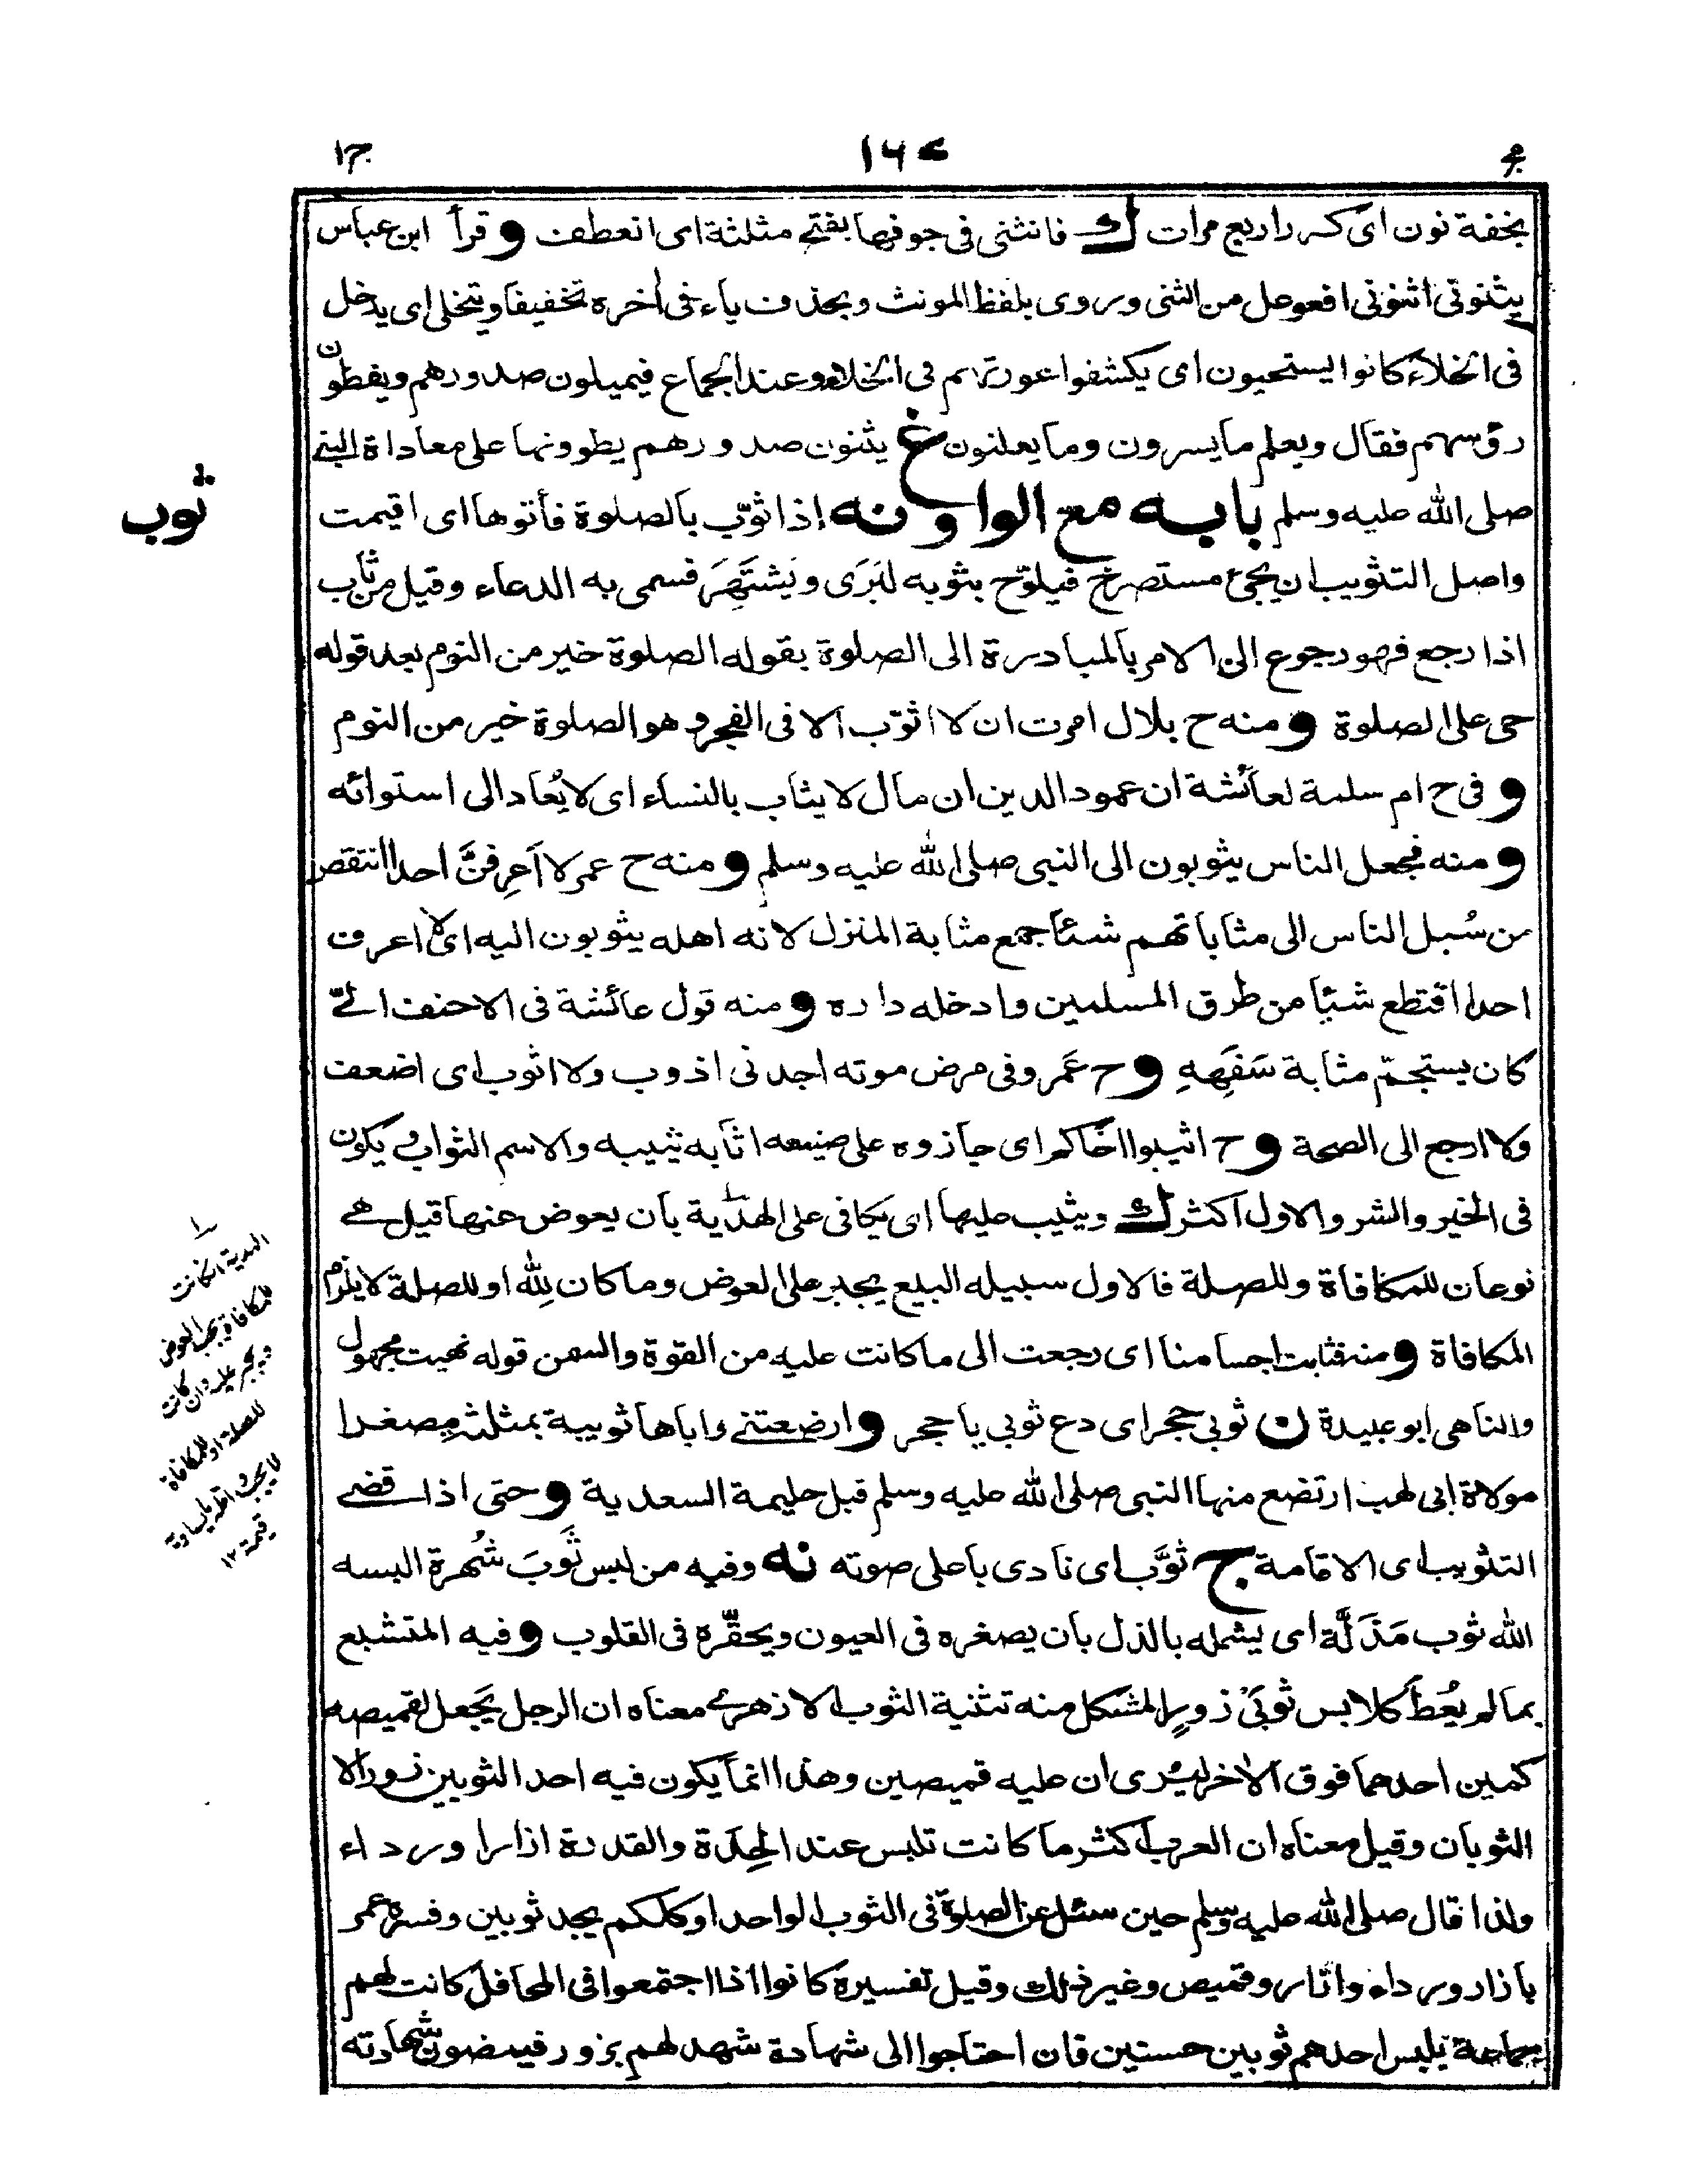 ج١ ١٦٧
بخفة نون اى كـ راربع مرات ك فانثنى فى جوفها بفتح مثلثة اى انعطف و قرأ ابن عباس
يثنونى اثنونى افعوعل من الثنى وروى بلفظ المونث وبحذف ياء فى أخره تخفيفا ويتخلى اى يدخل
فى الخلاء كانوا يستحيون اى يكشفوا عورتهم فى الخلاء وعند الجماع فيميلون صدورهم ويغطون
رؤسهم فقال ويعلم ما يسرون وما يعلنون غ يثنون صدورهم يطوونها على معاداة النبى
صلى الله عليه وسلم بابه مع الواو نه إذا ثوّب بالصلوة فأتوها اى اقيمت
ثوب
واصل التثويب ان يجئ مستصرخ فيلوّح بثوبه ليَرَى ويَشتَهِرَ فسمى به الدعاء وقيل من ثاب
اذا رجع فهو رجوع الى الامر بالمبادرة الى الصلوة بقوله الصلوة خير من النوم بعد قوله
حى على الصلوة و منه ح بلال امرت ان لا اثوّب الا فى الفجر وهو الصلوة خير من النوم
و فى ح ام سلمة لعائشة ان عمود الدين ان مال لا يثاب بالنساء اى لا يُعاد الى استوائه
و منه فجعل الناس يثوبون الى النبى صلى الله عليه وسلم و منه ح عمر لا اَعرِفنَّ احدا انتقص
من سُبل الناس الى مثاباتهم شئا جمع مثابة المنزل لانه اهله يثوبون اليه اى لا اعرف
احدا اقتطع شيئا من طرق المسلمين وادخله داره و منه قول عائشة فى الاحنف الىّ
كان يستجمّ مثابة سَفَهِهِ و ح عَمرو فى مرض موته اجدنى اذوب ولا اثوب اى اضعف
ولا ارجع الى الصحة و ح اثيبوا اخاكم اى جازوه على صنيعه اثابه يثيبه والاسم الثواب ويكون
فى الخير والشر والاول اكثر ك ويثيب عليها اى يكافى على الهدية بان يعوض عنها قيل هى
نوعان للمكافاة وللصلة فالاول سبيله البيع يجبر على العوض وما كان لِلّه او للصلة لا يلزم
المكافاة و منه فثابت اجسامنا اى رجعت الى ما كانت عليه من القوة والسمن قوله نهيت مجهول
والناهى ابو عبيدة ن ثوبى حجر اى دع ثوبى يا حجر و ارضعتنى واباها ثويبة بمثلثة مصغرا
مولاة ابى لهب ارتضع منها النبى صلى الله عليه وسلم قبل حليمة السعدية و حتى اذا قضى
التثويب اى الاقامة ج ثوَّب اى نادى باعلى صوته نه وفيه من لبس ثَوبَ شُهرة البسه
الله ثوب مَذَلَّة اى يشمله بالذل بان يصغره فى العيون ويحقّره فى القلوب و فيه المتشبع
بما لم يعُطَ كلابس ثوبَىْ زورٍ المشكل منه تثنية الثوب الازهرى معناه ان الرجل يَجعل لقميصه
كمين احدهما فوق الاٰخر ليُرى ان عليه قميصين وهذا انما يكون فيه احد الثوبين زورا لا
الثوبان وقيل معناه ان العرب اكثر ما كانت تلبس عند الجِدَة والقدرة ازارا ورداء
ولذا قال صلى الله عليه وسلم حين سئل عن الصلوة فى الثوب الواحد او كلكم يجد ثوبين وفسره عمر
بازار ورداء وازار وقميص وغير ذلك وقيل تفسيره كانوا اذا اجتمعوا فى المحافل كانت لهم
جماعة يلبس احدهم ثوبين حسنين فان احتاجوا الى شهادة شهد لهم بزور فيمضون شهادته
الهدية ان كانت
للمكافاة يجب العوض
ويجبر عليه وان كانت
للصلة او للمكافاة
قيمة ١٢